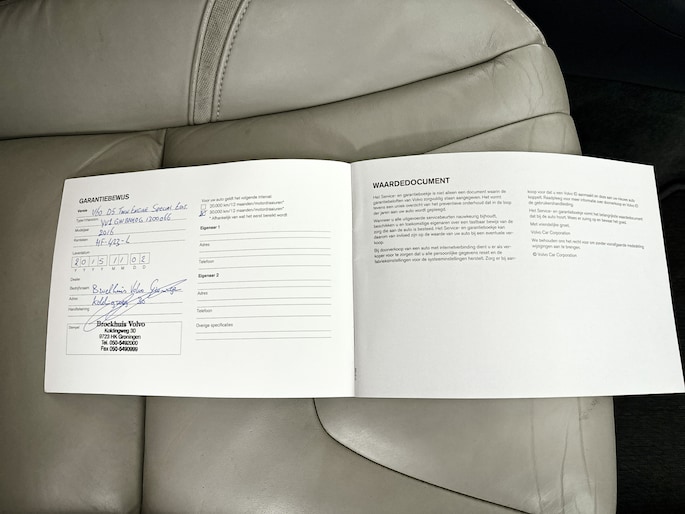 GARANTIEBEWIJS
Versie V90 D5 Twin Engine Special Edit
Type/chassisnr.
Modeljaar 2016
Kenteken HF-423-L
Leverdatum
2 0 1 5 1 1 0 2
Y Y Y Y M M D D
Dealer
Bedrijfsnaam Broekhuis Volvo Groningen
Adres Koldingweg 30
Handtekening
Stempel
Broekhuis Volvo
Koldingweg 30
9723 HK Groningen
Tel. 050-5492000
Fax 050-5490999
Voor uw auto geldt het volgende interval:
20.000 km/12 maanden/motordraaiuren*
30.000 km/12 maanden/motordraaiuren*
* Afhankelijk van wat het eerst bereikt wordt
Eigenaar 1
Adres
Telefoon
Eigenaar 2
Adres
Telefoon
Overige specificaties
WAARDEDOCUMENT
Het Service- en garantieboekje is niet alleen een document waarin de
garantiebewijs van Volvo zorgvuldig staan aangegeven. Het vormt
tevens een uniek overzicht van het periodieke onderhoud dat in de loop
der jaren aan uw auto wordt gepleegd.
Wanneer u alle uitgevoerde servicebeurten nauwkeurig bijhoudt,
beschikken u en toekomstige eigenaren over een tastbaar bewijs van de
zorg die aan de auto is besteed. Het Service- en garantieboekje kan
daarom van invloed zijn op de waarde van uw auto bij een eventuele ver-
koop.
Bij doorverkoop van een auto met internetverbinding dient u er als ver-
koper voor te zorgen dat u alle persoonlijke gegevens reset en de
fabrieksinstellingen voor de systeeminstellingen herstelt. Zorg er bij aan-
koop voor dat u een Volvo ID aanmaakt en deze aan uw nieuwe auto
koppelt. Raadpleeg voor meer informatie over doorverkoop en Volvo ID
de gebruikershandleiding.
Het Service- en garantieboekje vormt het belangrijkste waardedocument
dat bij de auto hoort. Wees er zuinig op en bewaar het goed.
Met vriendelijke groet,
Volvo Car Corporation
We behouden ons het recht voor om zonder voorafgaande mededeling
wijzigingen aan te brengen.
© Volvo Car Corporation